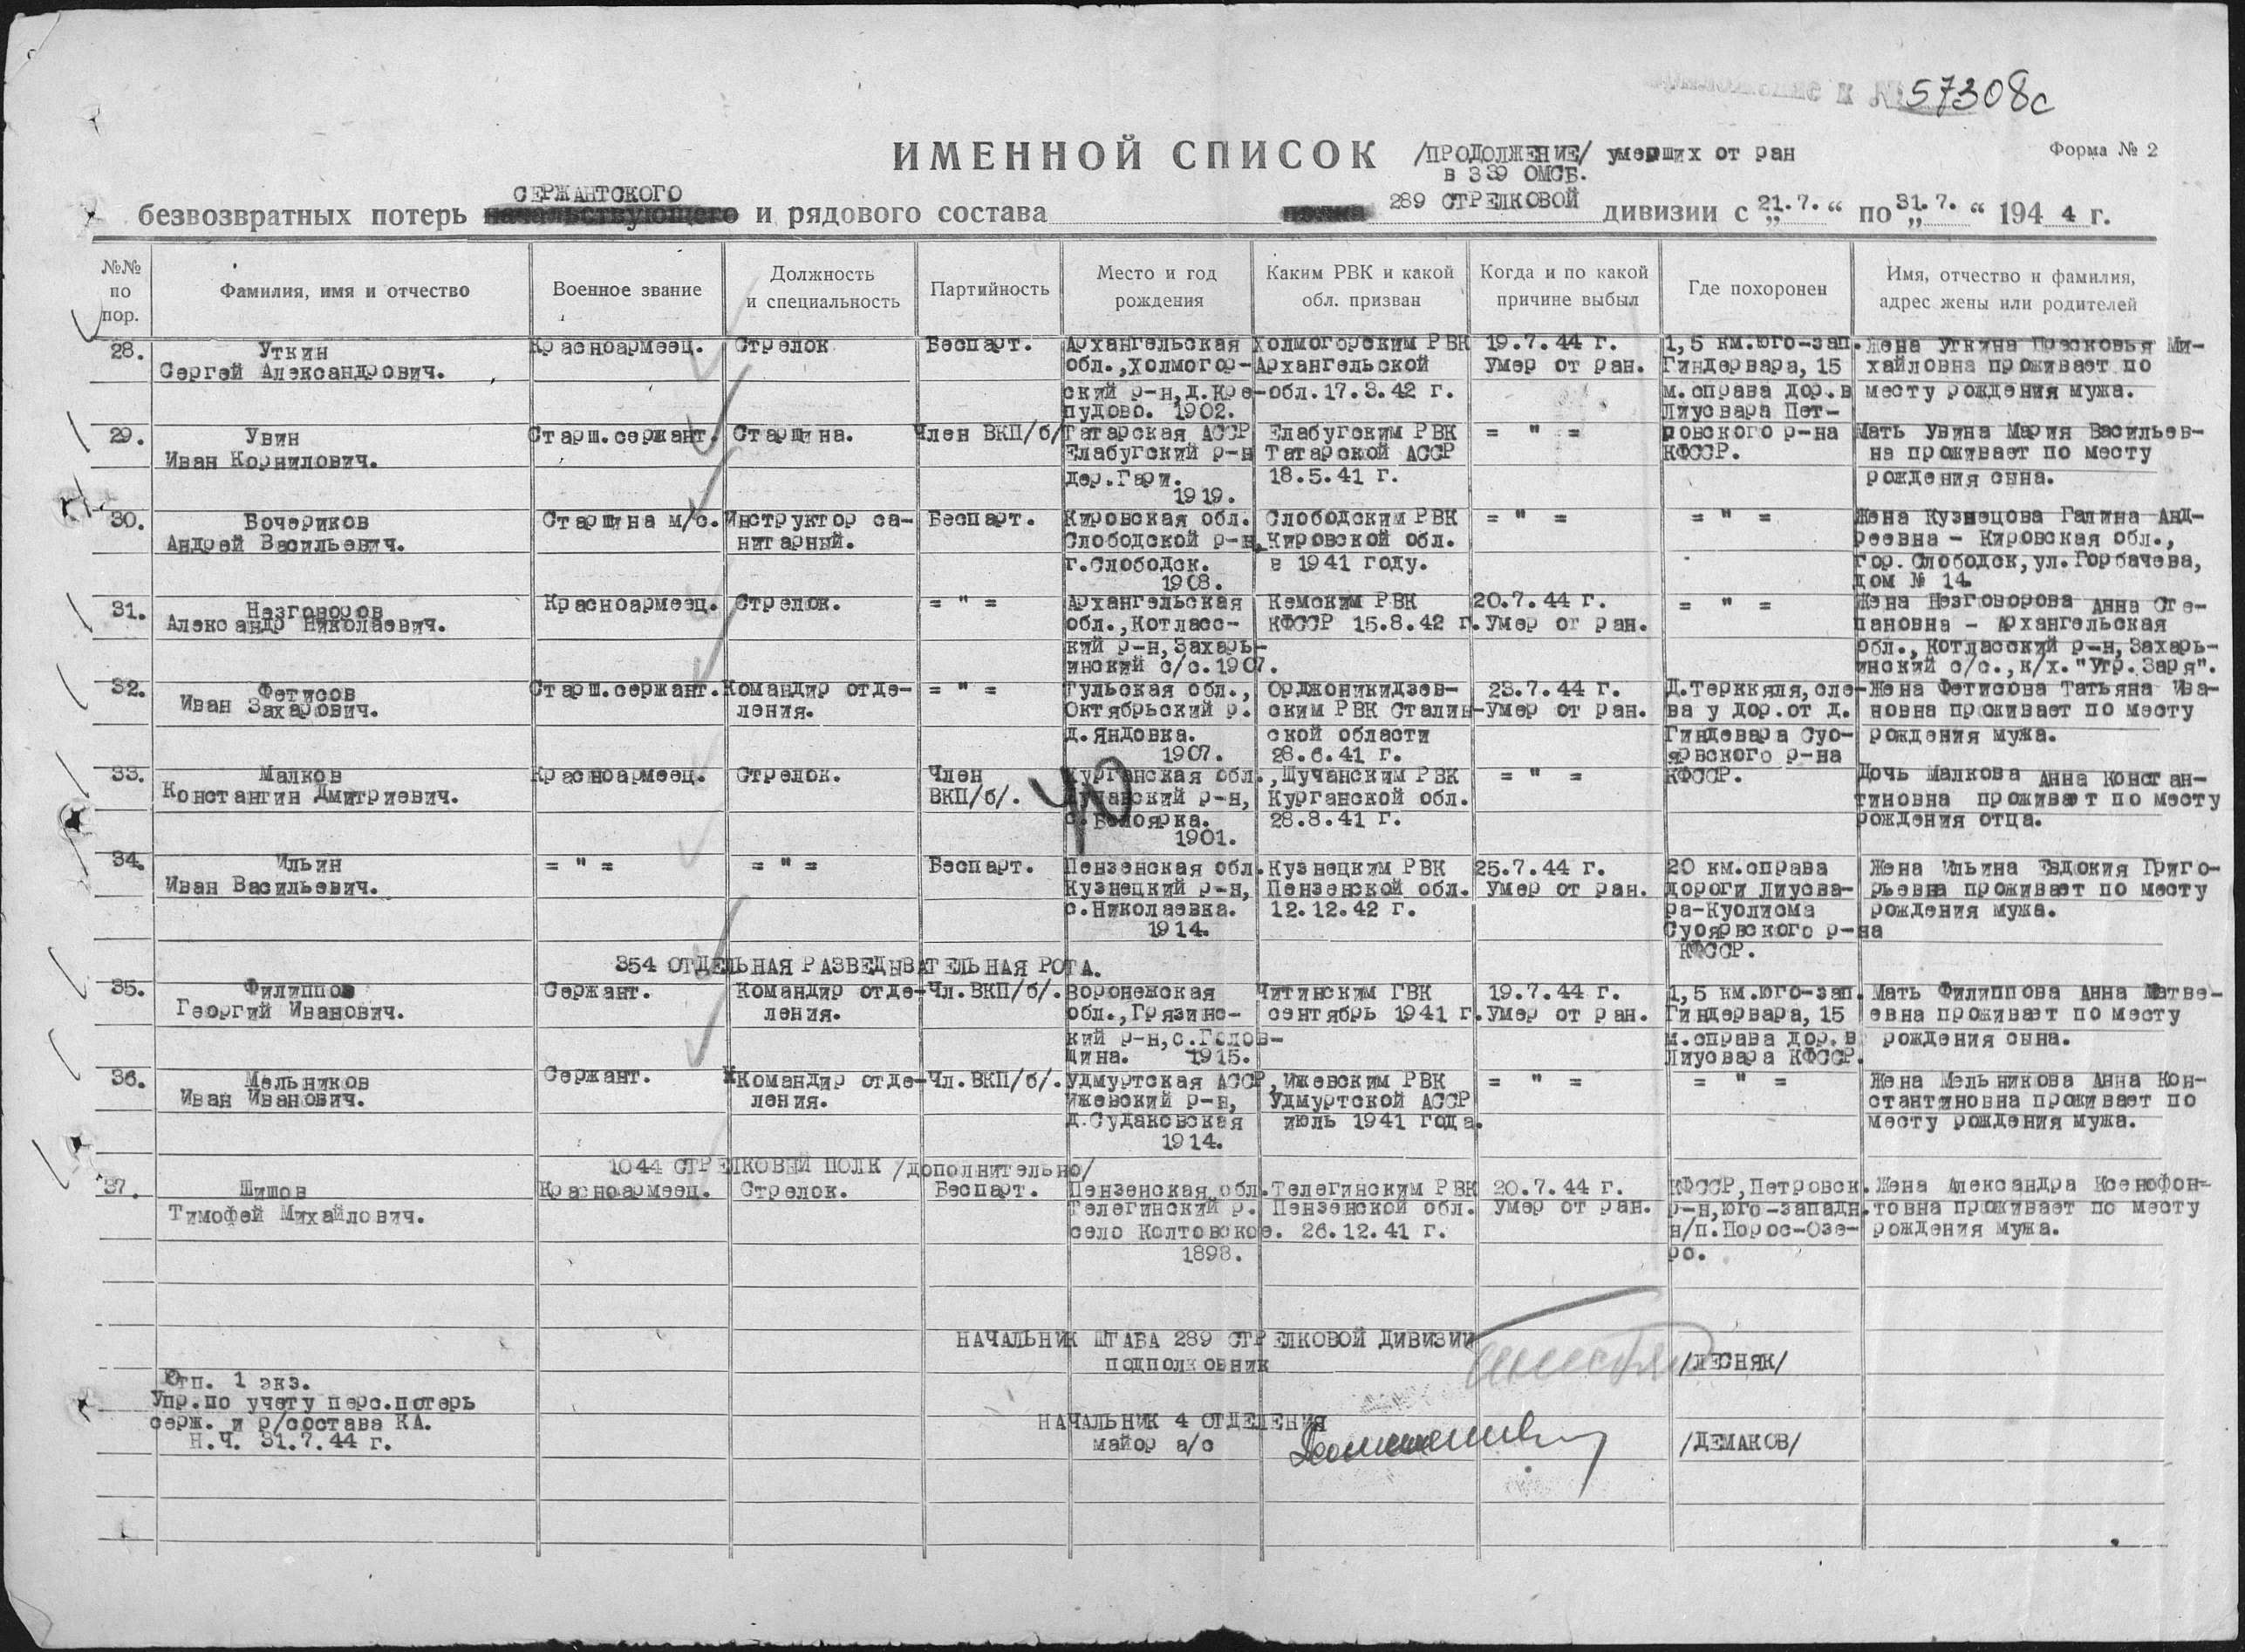 57308с
ИМЕННОЙ СПИСОК /ПРОДОЛЖЕНИЕ/ умерших от ран
в 339 ОМСБ.
Форма № 2
СЕРЖАНТСКОГО
безвозвратных потерь начальствующего и рядового состава 289 СТРЕЛКОВОЙ дивизии с „21.7.“ по „31.7.“ 1944 г.
№№ по пор.
Фамилия, имя и отчество
Военное звание
Должность и специальность
Партийность
Место и год рождения
Каким РВК и какой обл. призван
Когда и по какой причине выбыл
Где похоронен
Имя, отчество и фамилия, адрес жены или родителей
28.
Уткин
Сергей Александрович.
Красноармеец.
Стрелок
Беспарт.
Архангельская
обл.,Холмогор-
ский р-н,д.Кре-
пудово. 1902.
Холмогорским РВК
Архангельской
обл.17.3.42 г.
19.7.44 г.
Умер от ран.
1,5 км.юго-зап.
Гиндервара, 15
м.справа дор.в
Лиусвара Пет-
ровского р-на
КФССР.
Жена Уткина Просковья Ми-
хайловна проживает по
месту рождения мужа.
29.
Увин
Иван Корнилович.
Старш.сержант.
Старшина.
Член ВКП/б/
Татарская АССР
Елабугский р-н
дер.Гари.
1919.
Елабугским РВК
Татарской АССР
18.5.41 г.
= " =
Мать Увина Мария Васильев-
на проживает по месту
рождения сына.
30.
Бочериков
Андрей Васильевич.
Старшина м/с.
Инструктор са-
нитарный.
Беспарт.
Кировская обл.
Слободской р-н,
г.Слободск.
1908.
Слободским РВК
Кировской обл.
в 1941 году.
= " =
= " =
Жена Кузнецова Галина Анд-
реевна - Кировская обл.,
гор.Слободск,ул.Горбачева,
дом № 14.
31.
Незговоров
Александр Николаевич.
Красноармеец.
Стрелок.
= " =
Архангельская
обл.,Котласс-
кий р-н,Захарь-
инский с/с.1907.
Кемским РВК
КФССР 15.8.42 г.
20.7.44 г.
Умер от ран.
= " =
Жена Незговорова Анна Сте-
пановна - Архангельская
обл.,Котласский р-н,Захарь-
инский с/с.,к/х."Утр.Заря".
32.
Фетисов
Иван Захарович.
Старш.сержант.
Командир отде-
ления.
= " =
Тульская обл.,
Октябрьский р.
д.Яндовка.
1907.
Орджоникидзев-
ским РВК Сталин-
ской области
28.6.41 г.
23.7.44 г.
Умер от ран.
Д.Терккяля,сле-
ва у дор.от д.
Гиндевара Суо-
ярвского р-на
КФССР.
Жена Фетисова Татьяна Ива-
новна проживает по месту
рождения мужа.
33.
Малков
Константин Дмитриевич.
Красноармеец.
Стрелок.
Член
ВКП/б/.
Курганская обл.,
Шучанский р-н,
с.Белоярка.
1901.
Шучанским РВК
Курганской обл.
28.8.41 г.
= " =
Дочь Малкова Анна Констан-
тиновна проживает по месту
рождения отца.
34.
Ильин
Иван Васильевич.
= " =
= " =
Беспарт.
Пензенская обл.
Кузнецкий р-н,
с.Николаевка.
1914.
Кузнецким РВК
Пензенской обл.
12.12.42 г.
25.7.44 г.
Умер от ран.
20 км.справа
дороги Лиусва-
ра-Куолисма
Суоярвского р-на
КФССР.
Жена Ильина Евдокия Григо-
рьевна проживает по месту
рождения мужа.
354 ОТДЕЛЬНАЯ РАЗВЕДЫВАТЕЛЬНАЯ РОТА.
35.
Филиппов
Георгий Иванович.
Сержант.
Командир отде-
ления.
Чл.ВКП/б/.
Воронежская
обл.,Грязинс-
кий р-н,с.Голов-
щина. 1915.
Читинским ГВК
сентябрь 1941 г.
19.7.44 г.
Умер от ран.
1,5 км.юго-зап.
Гиндервара, 15
м.справа дор.в
Лиусвара КФССР.
Мать Филиппова Анна Матве-
евна проживает по месту
рождения сына.
36.
Мельников
Иван Иванович.
Сержант.
Командир отде-
ления.
Чл.ВКП/б/.
Удмуртская АССР,
Ижевский р-н,
д.Судаковская
1914.
Ижевским РВК
Удмуртской АССР
июль 1941 года.
= " =
= " =
Жена Мельникова Анна Кон-
стантиновна проживает по
месту рождения мужа.
1044 СТРЕЛКОВЫЙ ПОЛК /дополнительно/
37.
Шишов
Тимофей Михайлович.
Красноармеец.
Стрелок.
Беспарт.
Пензенская обл.
Телегинский р.
село Колтовское.
1898.
Телегинским РВК
Пензенской обл.
26.12.41 г.
20.7.44 г.
Умер от ран.
КФССР,Петровск.
р-н,юго-западн.
н/п.Порос-Озе-
ро.
Жена Александра Ксенофон-
товна проживает по месту
рождения мужа.
НАЧАЛЬНИК ШТАБА 289 СТРЕЛКОВОЙ ДИВИЗИИ
подполковник
/ЛЕСНЯК/
Отп. 1 экз.
Упр.по учету перс.потерь
серж. и р/состава КА.
Н.Ч. 31.7.44 г.
НАЧАЛЬНИК 4 ОТДЕЛЕНИЯ
майор а/с
/ДЕМАКОВ/